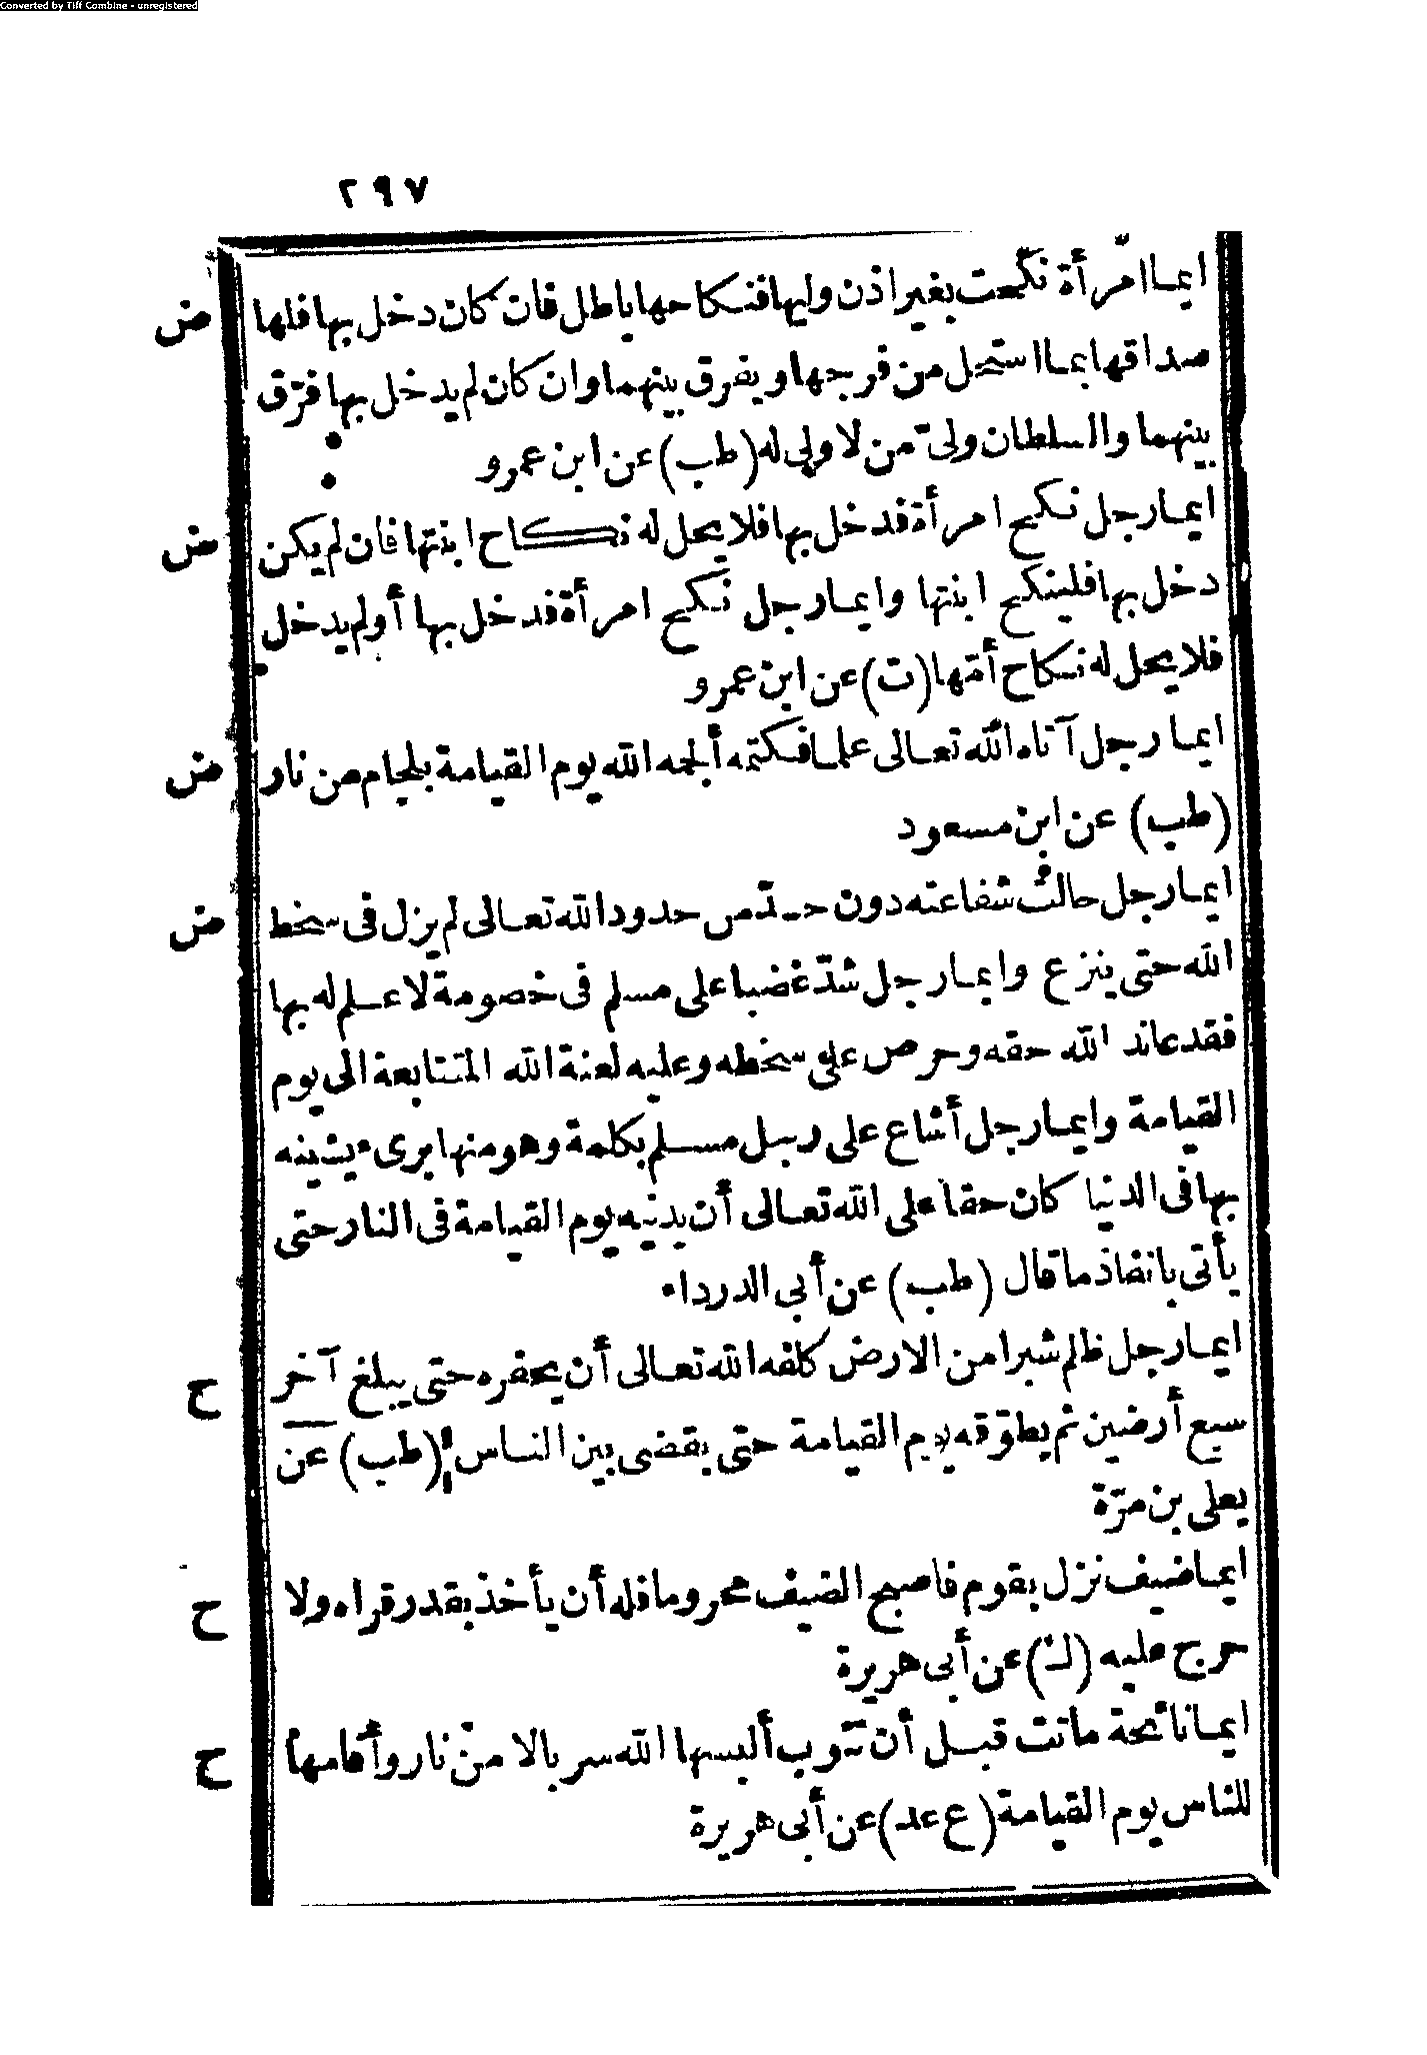 Converted by Tiff Combine - unregistered
٢٩٧
ايما امرأة نكحت بغير اذن وليها فنكاحها باطل فان كان دخل بها فلها ض
صداقها بما استحل من فرجها ويفرق بينهما وان كان لم يدخل بها فرّق
بينهما والسلطان ولىّ من لا ولى له (طب) عن ابن عمرو
ايما رجل نكح امرأة فدخل بها فلا يحل له نكاح ابنتها فان لم يكن ض
دخل بها فلينكح ابنتها وايما رجل نكح امرأة فدخل بها أو لم يدخل
فلا يحل له نكاح أمّها (ت) عن ابن عمرو
ايما رجل آتاه الله تعالى علما فكتمه ألجمه الله يوم القيامة بلجام من نار ض
(طب) عن ابن مسعود
ايما رجل حالت شفاعته دون حدّ من حدود الله تعالى لم يزل فى سخط ض
الله حتى ينزع وايما رجل شدّ غضبا على مسلم فى خصومة لا علم له بها
فقد عاند الله حقه وحرص على سخطه وعليه لعنة الله المتتابعة الى يوم
القيامة وايما رجل أشاع على رجل مسلم بكلمة وهو منها برىء يشينه
بها فى الدنيا كان حقا على الله تعالى أن يدنيه يوم القيامة فى النار حتى
يأتى بانفاذ ما قال (طب) عن أبى الدرداء
ايما رجل ظلم شبرا من الارض كلفه الله تعالى أن يحفره حتى يبلغ آخر ح
سبع أرضين ثم يطوّقه يوم القيامة حتى يقضى بين الناس (طب) عن
يعلى بن مرّة
ايما ضيف نزل بقوم فاصبح الضيف محروما فله أن يأخذ بقدر قراه ولا ح
حرج عليه (ك) عن أبى هريرة
ايما نائحة ماتت قبل أن تتوب ألبسها الله سربالا من نار وأقامها ح
للناس يوم القيامة (ع عد) عن أبى هريرة